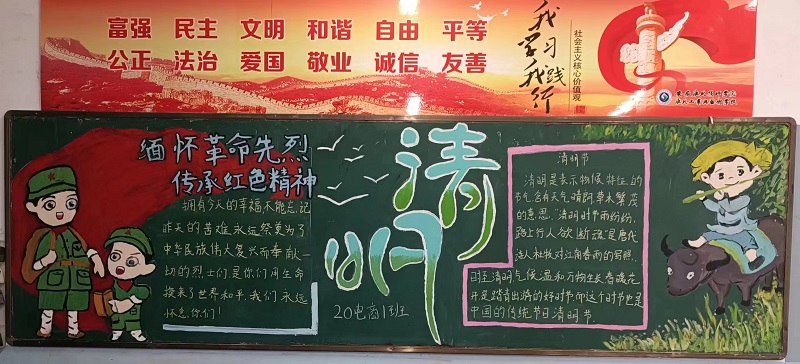 富强 民主 文明 和谐 自由 平等
公正 法治 爱国 敬业 诚信 友善
我学习我践行
社会主义核心价值观
缅怀革命先烈
传承红色精神
拥有今人的幸福不能忘记
昨天的苦难永远祭奠为了
中华民族伟大复兴而奉献一
切的烈士们是你们用生命
换来了世界和平,我们永远
怀念你们!
清明
20电商1班
清明节
清明是表示物候特征的
节气,含有天气晴朗草木繁茂
的意思。"清明时节雨纷纷,
路上行人欲断魂"是唐代
诗人杜牧对江南春雨的写照。
时至清明气候温和万物生长春暖花
开是踏青出游的好时节而这个时节也是
中国的传统节日清明节